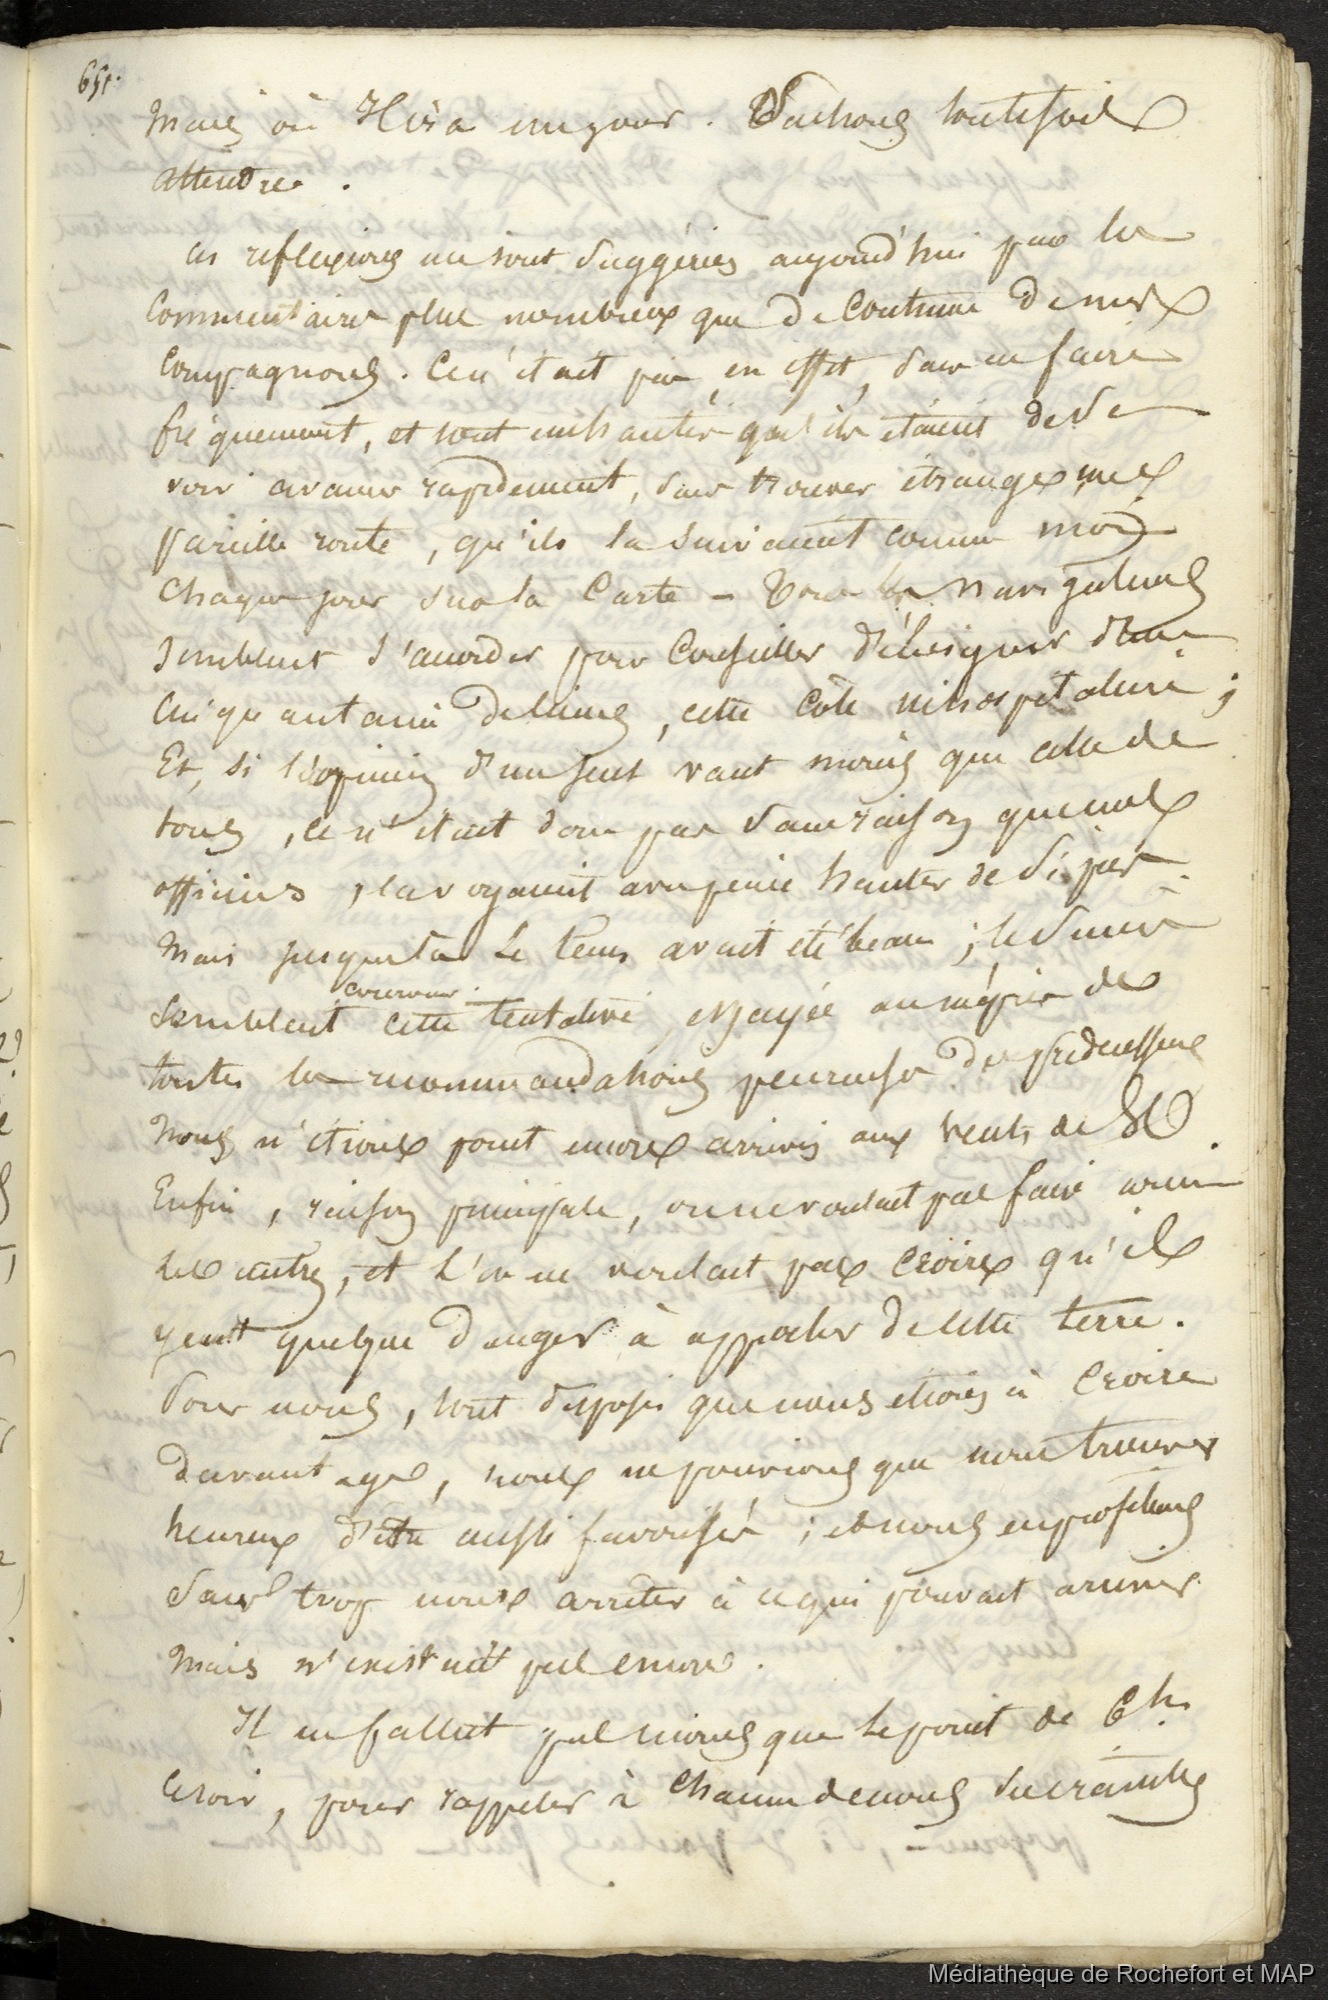 651.
Mais où Il ira un jour. Sachons toutefois
attendre.
ces reflexions me sont suggérées aujourd'hui par les
Commentaires plus nombreux que de Coutume de mes
Compagnons. Ce n'était pas, en effet, sans en faire
fréquemment, et tout enchantés qu'ils étaient de se
voir avancer rapidement, sans trouver étrange une
pareille route, qu'ils la suivaient comme moi
Chaque jour sur la Carte – Tous les Navigateurs
semblent s'accorder pour Conseiller d'éloigner d'une
Cinquantaine de lieues, cette Côte inhospitalière;
Et, si l'opinion d'un seul vaut moins que celle de
tous, ce n'était donc pas sans raison que nos
officiers, la voyaient avec peine hanter de si près.
Mais jusque là le tems avait été beau; le Succès
Semblait couronner cette tentative, essayée au mépris de
toutes les recommandations de prédécesseurs
Nous n'étions point encore arrivés aux vents de SO.
Enfin, raison principale, on ne voulait pas faire comme
les autres, et l'on ne voulait pas croire qu'il
y eut quelque danger à approcher de cette terre.
Pour nous, tout disposés que nous étions à Croire
davantage, nous ne pouvions que nous trouver
heureux d'être aussi favorisés; et nous en profitions
Sans trop nous arrêter à ce qui pouvait arriver
Mais n'existait pas encore.
Il ne fallut pas moins que le point de 6h.
Ce soir, pour rappeler à Chacun de nous ses craintes
Médiathèque de Rochefort et MAP